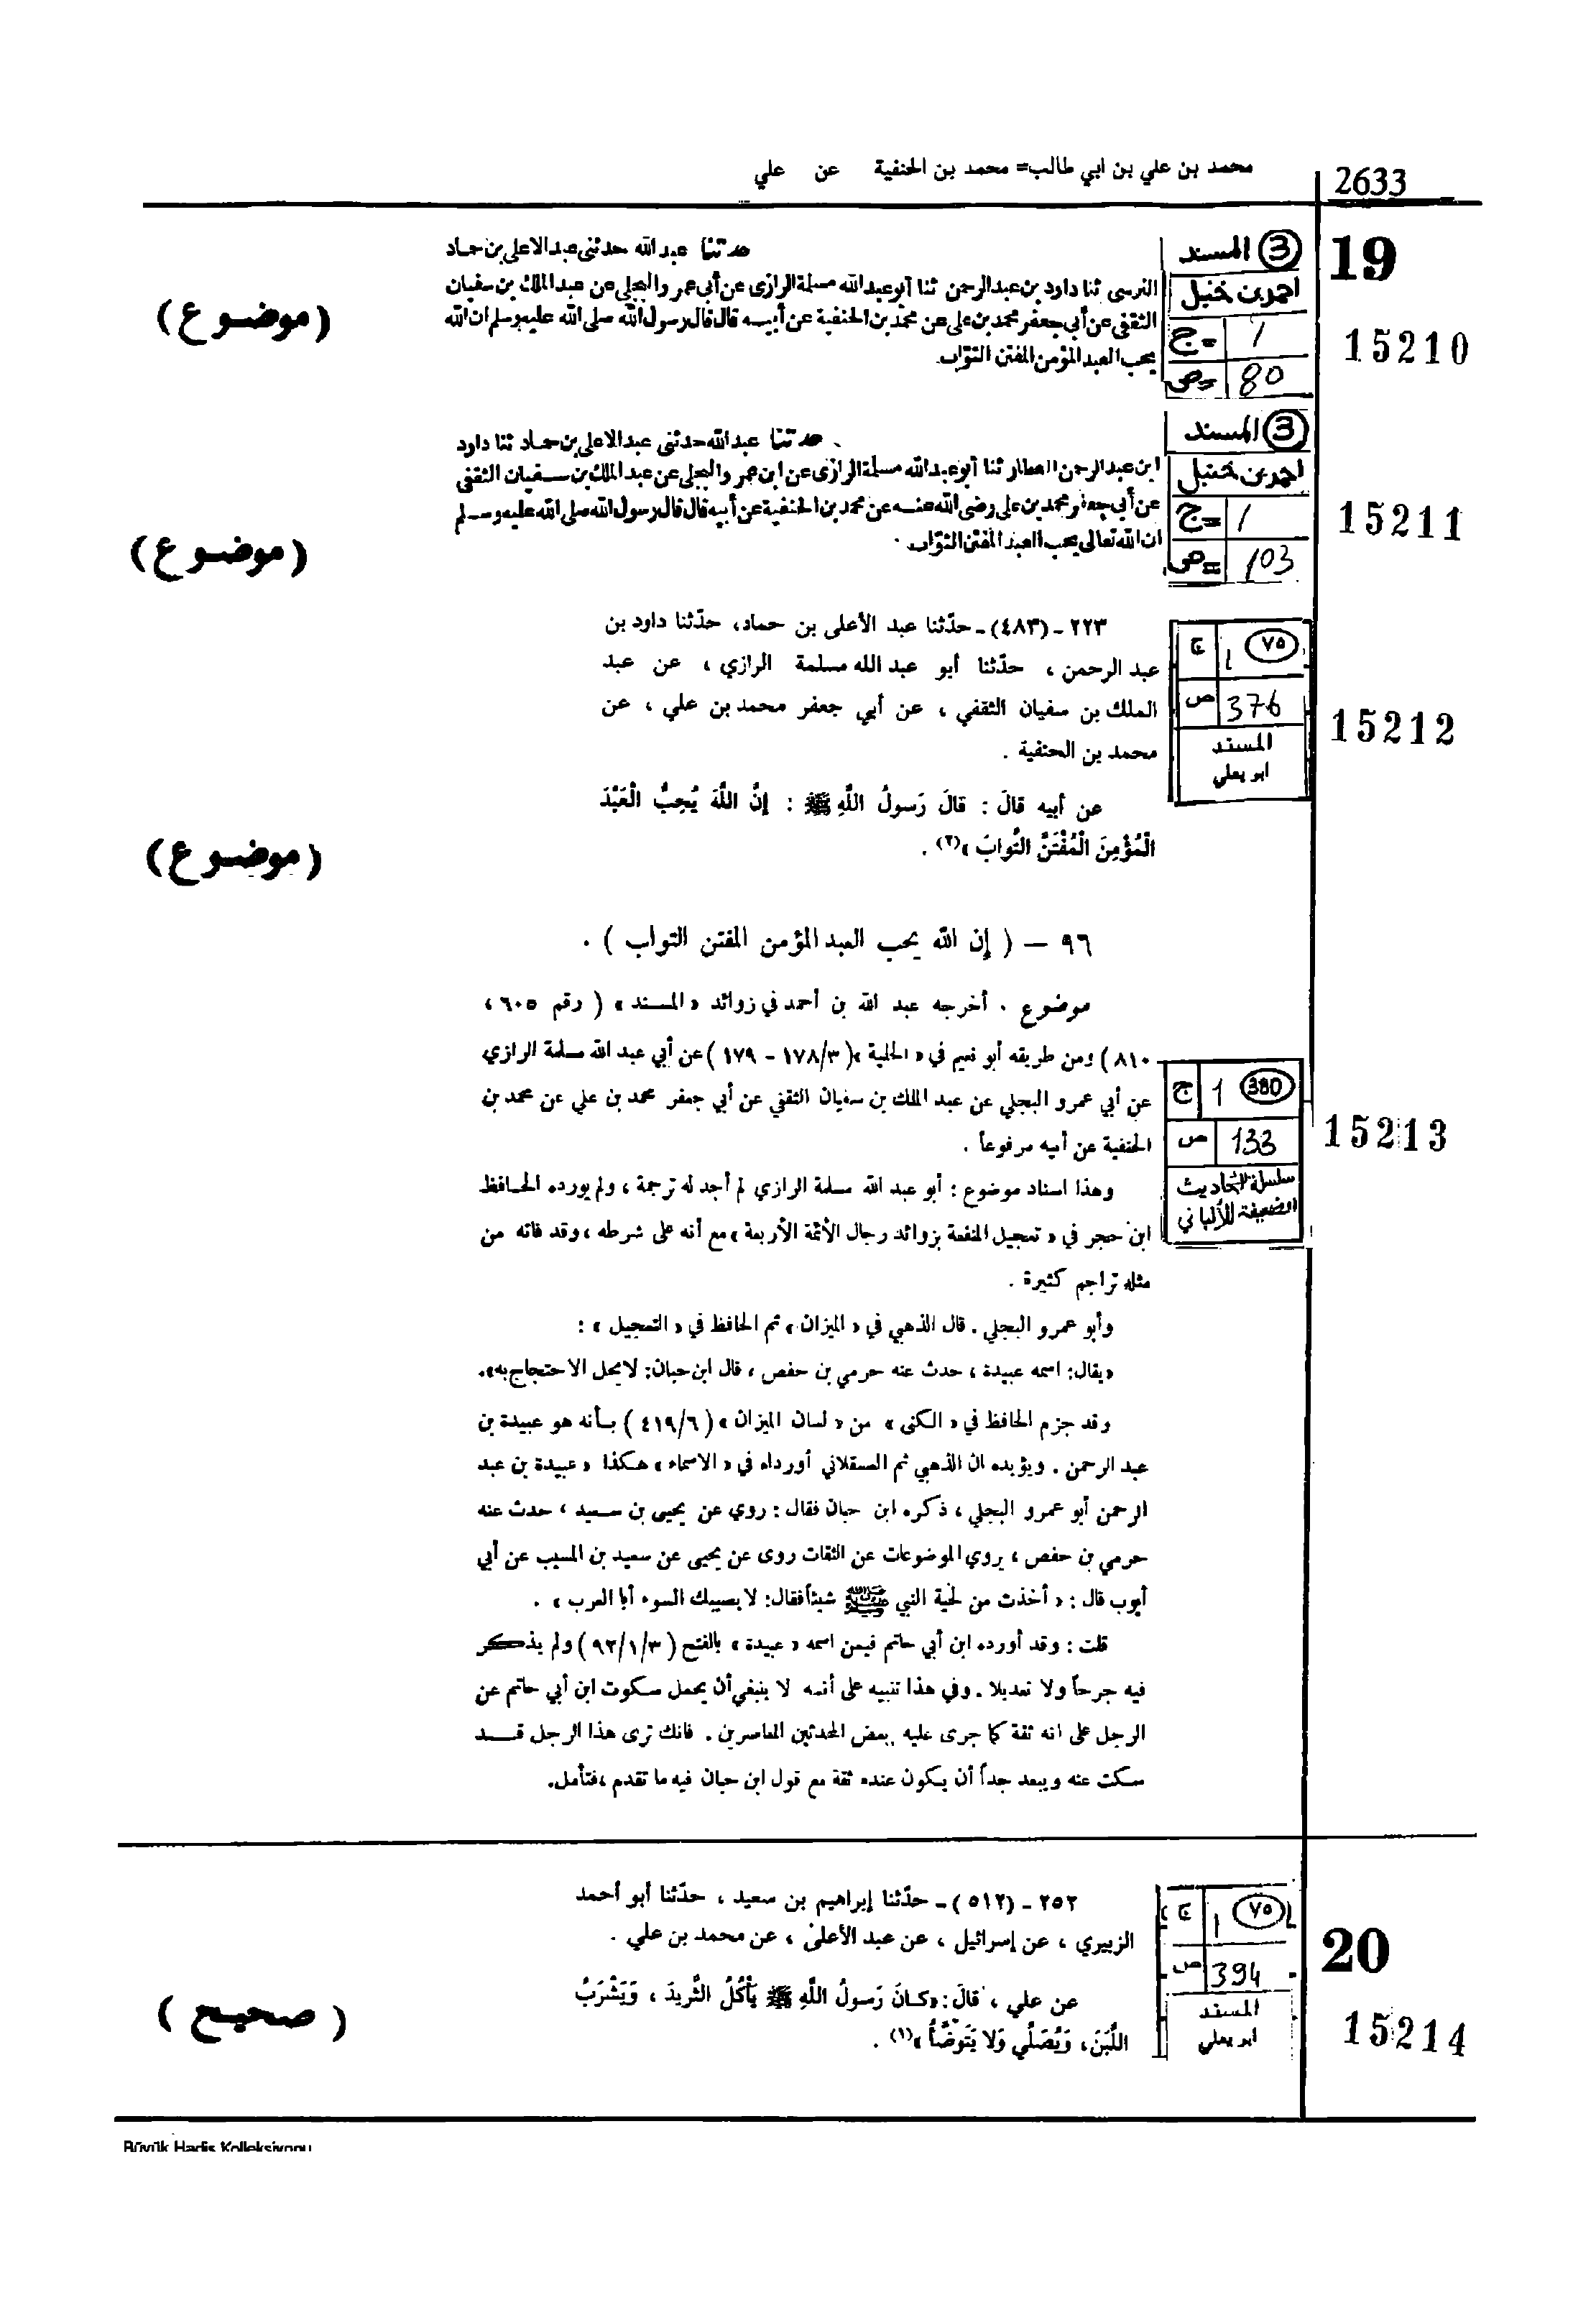 2633
محمد بن علي بن ابي طالب= محمد بن الحنفية عن علي
19
3 المسند
احمد بن حنبل
ج= 1
ص= 80
15210
حدثنا عبد الله حدثنى عبد الاعلى بن حماد
النرسى ثنا داود بن عبد الرحمن ثنا أبو عبد الله مسلمة الرازى عن أبى عمرو البجلى عن عبد الملك بن سفيان
الثقفى عن أبى جعفر محمد بن على عن محمد بن الحنفية عن أبيه قال قال رسول الله صلى الله عليه وسلم ان الله
يحب العبد المؤمن المفتن التواب
(موضوع)
3 المسند
احمد بن حنبل
ج= 1
ص= 103
15211
حدثنا عبد الله حدثنى عبد الاعلى بن حماد ثنا داود
ابن عبد الرحمن العطار ثنا أبو عبد الله مسلمة الرازى عن ابن عمرو البجلى عن عبد الملك بن سفيان الثقفى
عن أبى جعفر محمد بن على رضى الله عنه عن محمد بن الحنفية عن أبيه قال قال رسول الله صلى الله عليه وسلم
ان الله تعالى يحب العبد المفتن التواب .
(موضوع)
٧٥ 1 ج
376 ص
المسند
ابو يعلي
15212
٢٢٣ - (٤٨٣) - حدّثنا عبد الأعلى بن حماد، حدّثنا داود بن
عبد الرحمن ، حدّثنا أبو عبد الله مسلمة الرازي ، عن عبد
الملك بن سفيان الثقفي ، عن أبي جعفر محمد بن علي ، عن
محمد بن الحنفية .
عن أبيه قالَ : قالَ رَسولُ اللَّهِ ﷺ : إنَّ اللَّهَ يُحِبُّ الْعَبْدَ
الْمُؤْمِنَ الْمُفْتَنَّ التَّوابَ »(٢) .
(موضوع)
٩٦ — ( إن الله يحب العبد المؤمن المفتن التواب ) .
موضوع . أخرجه عبد الله بن أحمد في زوائد « المسند » ( رقم ٦٠٥ ،
٨١٠ ) ومن طريقه أبو نعيم في « الحلية » ( ١٧٨/٣ - ١٧٩ ) عن أبي عبد الله مسلمة الرازي
عن أبي عمرو البجلي عن عبد الملك بن سفيان الثقفي عن أبي جعفر محمد بن علي عن محمد بن
الحنفية عن أبيه مرفوعاً .
380 1 ج
133 ص
سلسلة الأحاديث
الضعيفة للألباني
15213
وهذا اسناد موضوع : أبو عبد الله مسلمة الرازي لم أجد له ترجمة ، ولم يورده الحافظ
ابن حجر في « تعجيل المنفعة بزوائد رجال الأئمة الأربعة » مع أنه على شرطه ، وقد فاته من
مثله تراجم كثيرة .
وأبو عمرو البجلي . قال الذهبي في « الميزان » ثم الحافظ في « التعجيل » :
« يقال: اسمه عبيدة ، حدث عنه حرمي بن حفص ، قال ابن حبان: لا يحل الاحتجاج به ».
وقد جزم الحافظ في « الكنى » من « لسان الميزان » ( ٤١٩/٦ ) بأنه هو عبيدة بن
عبد الرحمن . ويؤيده ان الذهبي ثم العسقلاني أورداه في « الاسماء » هكذا « عبيدة بن عبد
الرحمن أبو عمرو البجلي ، ذكره ابن حبان فقال : روي عن يحيى بن سعيد ، حدث عنه
حرمي بن حفص ، يروي الموضوعات عن الثقات روى عن يحيى عن سعيد بن المسيب عن أبي
أيوب قال : « أخذت من لحية النبي ﷺ شيئاً فقال: لا يصيبك السوء أبا العرب » .
قلت : وقد أورده ابن أبي حاتم فيمن اسمه « عبيدة » بالفتح ( ٩٢/١/٣ ) ولم يذكر
فيه جرحاً ولا تعديلا . وفي هذا تنبيه على أنه لا ينبغي أن يحمل سكوت ابن أبي حاتم عن
الرجل على انه ثقة كما جرى عليه بعض المحدثين المعاصرين . فانك ترى هذا الرجل قد
سكت عنه ويبعد جداً أن يكون عنده ثقة مع قول ابن حبان فيه ما تقدم ، فتأمل.
20
٧٥ 1 ج
394 ص
المسند
ابو يعلي
15214
٢٥٢ - (٥١٢) - حدّثنا إبراهيم بن سعيد ، حدّثنا أبو أحمد
الزبيري ، عن إسرائيل ، عن عبد الأعلىٰ ، عن محمد بن علي .
عن علي ، قالَ : «كانَ رَسولُ اللَّهِ ﷺ يَأْكُلُ الثَّريدَ ، وَيَشْرَبُ
اللَّبَنَ، وَيُصَلِّي وَلا يَتَوَضَّأُ »(١) .
( صحيح )
Büyük Hadis Kolleksiyonu